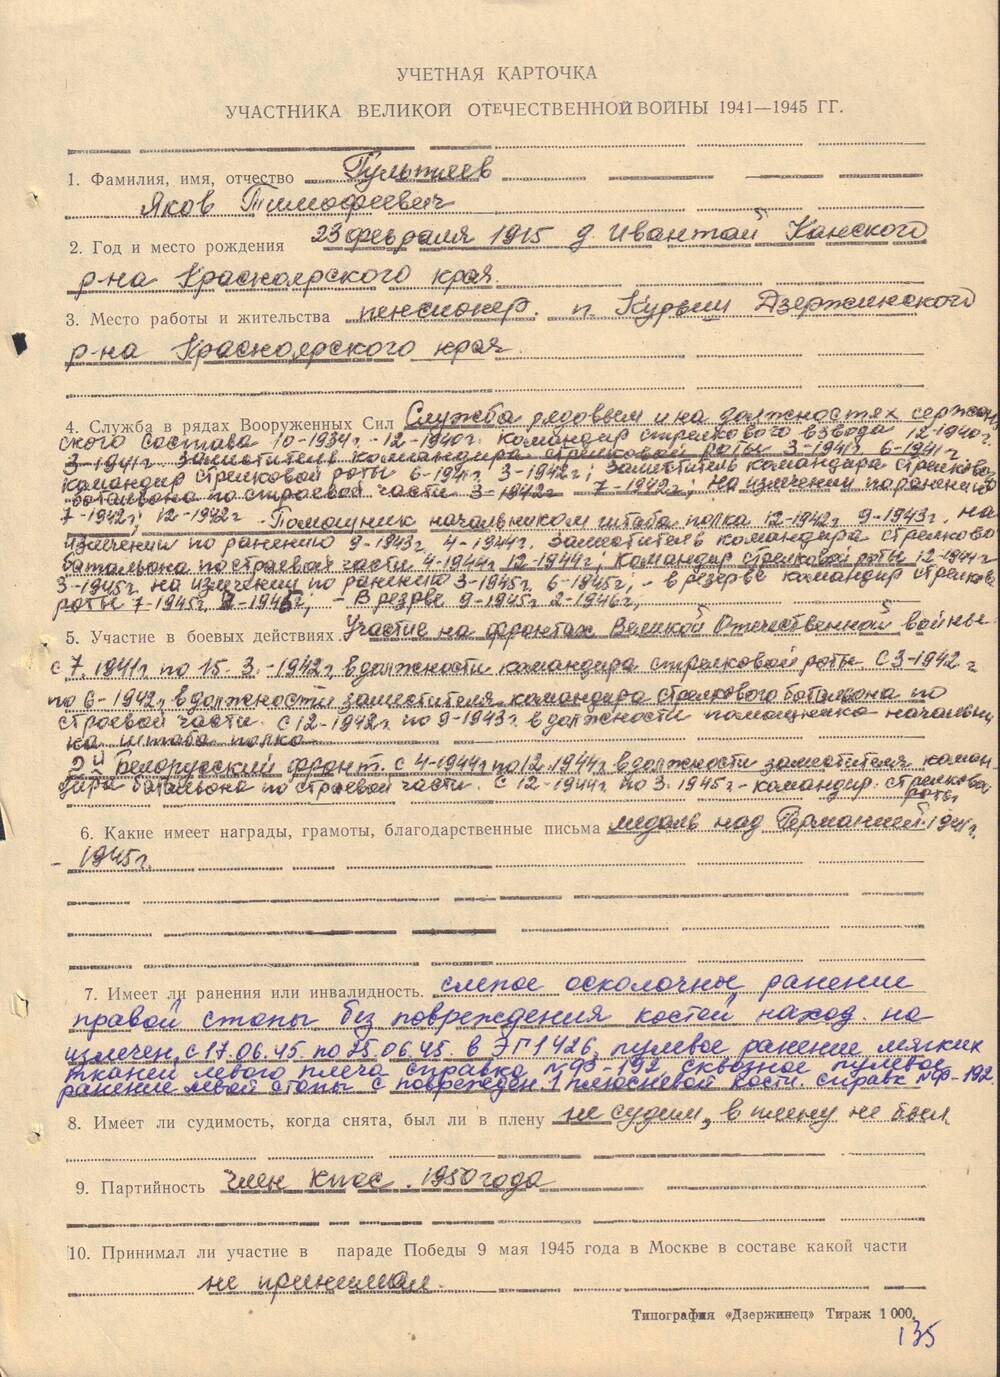 УЧЕТНАЯ КАРТОЧКА
УЧАСТНИКА ВЕЛИКОЙ ОТЕЧЕСТВЕННОЙ ВОЙНЫ 1941—1945 ГГ.
1. Фамилия, имя, отчество Гультяев
Яков Тимофеевич
2. Год и место рождения 23 февраля 1915 д. Ивантай Канского
р-на Красноярского края.
3. Место работы и жительства пенсионер. п. Курыш Дзержинского
р-на Красноярского края.
4. Служба в рядах Вооруженных Сил Служба рядовым и на должностях сержан
ского состава 10-1934г. -12-1940г. командир стрелкового взвода 12-1940г.
3-1941г. заместитель командира стрелковой роты 3-1941г 6-1941г
командир стрелковой роты 6-1941г 3-1942г; заместитель командира стрелково
батальона по строевой части 3-1942г 7-1942г; на излечении по ранению
7-1942г; 12-1942г - Помощник начальником штаба полка 12-1942г 9-1943г. на
излечении по ранению 9-1943г. 4-1944г. заместитель командира стрелково
батальона по строевой части 4-1944г 12-1944г; командир стрелковой роты 12-1944г
3-1945г. на излечении по ранению 3-1945г. 6-1945г; - в резерве командир стрелков
роты 7-1945г. 2-1946г; - В резрве 9-1945г. 2-1946г;
5. Участие в боевых действиях. Участие на фронтах Великой Отечественной войны
с 7.1941г. по 15.3.-1942г, в должности командира стрелковой роты С 3-1942 г
по 6-1942, в должности заместителя командира стрелкового батальона по
строевой части. с 12-1942г. по 9-1943г. в должности помощника начальни
ка штаба полка
2й Белорусский фронт. с 4-1944г по 12.1944г. в должности заместителя коман-
дира батальона по строевой части. С 12-1944г. по 3.1945г. - командир. стрелковой
роты
6. Какие имеет награды, грамоты, благодарственные письма медаль над Германией 1941г.
- 1945г.
7. Имеет ли ранения или инвалидность. слепое осколочные ранение
правой стопы без повреждения костей наход. на
излечен. с 17.06.45. по 25.06.45. в ЭГ 1426, пулевое ранение мягких
тканей левого плеча справка №Ф-192, сквозное пулевое
ранение левой стопы с поврежден. 1 плюсневой кости. справк №Ф-192.
8. Имеет ли судимость, когда снята, был ли в плену не судим, в плену не был.
9. Партийность член КПСС. 1950 года
10. Принимал ли участие в параде Победы 9 мая 1945 года в Москве в составе какой части
не принимал.
Типография «Дзержинец» Тираж 1 000.
135